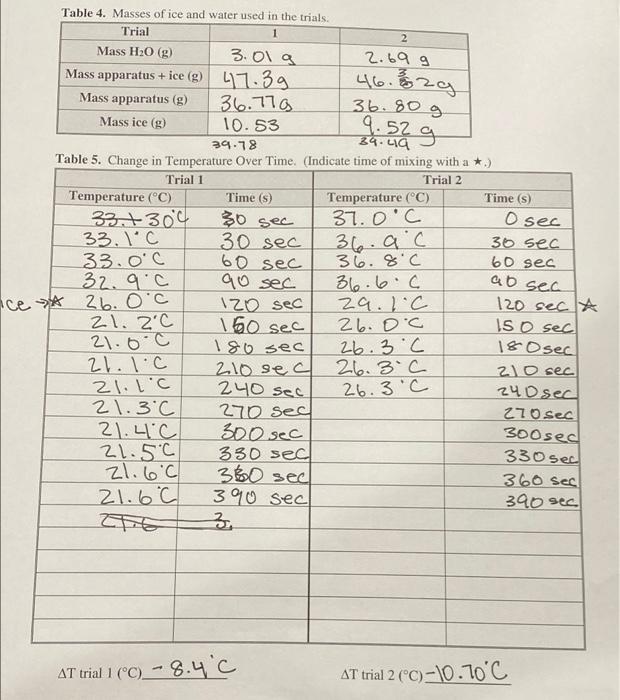 Table 4. Masses of ice and water used in the trials.
Trial 1 2
Mass H₂O (g) 3.01 g 2.69 g
Mass apparatus + ice (g) 47.3g 46.32g
Mass apparatus (g) 36.77g 36.80 g
Mass ice (g) 10.53 9.52 g
39.78 39.49
Table 5. Change in Temperature Over Time. (Indicate time of mixing with a ★.)
Trial 1 Trial 2
Temperature (°C) Time (s) Temperature (°C) Time (s)
30 sec 37.0°C 0 sec
33.1°C 30 sec 36.9°C 30 sec
33.0°C 60 sec 36.8°C 60 sec
32.9°C 90 sec 36.6°C 90 sec
ice →☆ 26.0°C 120 sec 29.1°C 120 sec ☆
21.2°C 150 sec 26.0°C 150 sec
21.0°C 180 sec 26.3°C 180sec
21.1°C 210 sec 26.3°C 210 sec
21.1°C 240 sec 26.3°C 240sec
21.3°C 270 sec 270sec
21.4°C 300sec 300sec
21.5°C 330 sec 330sec
21.6°C 360 sec 360 sec
21.6°C 390 sec 390 sec
21.6 3
ΔT trial 1 (°C) -8.4°C ΔT trial 2 (°C) -10.70°C